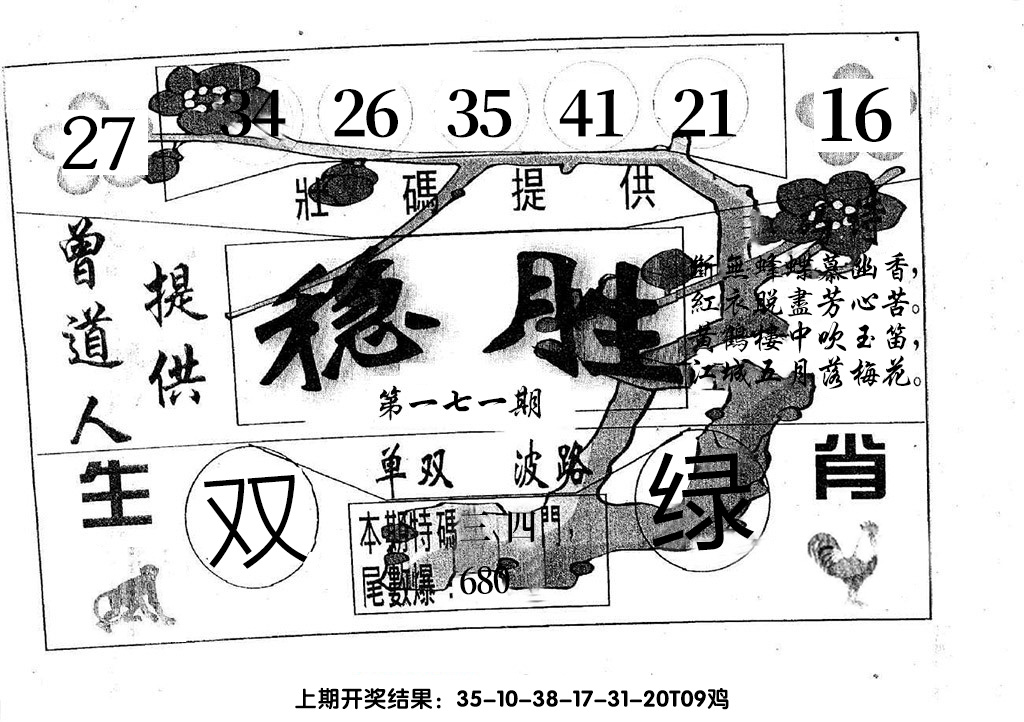 27 34 26 35 41 21 16
壯碼提供
特
曾道人
提供
稳胜
第一七一期
斷無蜂蝶慕幽香，
紅衣脫盡芳心苦。
黃鶴樓中吹玉笛，
江城五月落梅花。
单双 波路
生肖
双
绿
本期特碼三、四門，
尾數爆：680
上期开奖结果：35-10-38-17-31-20T09鸡